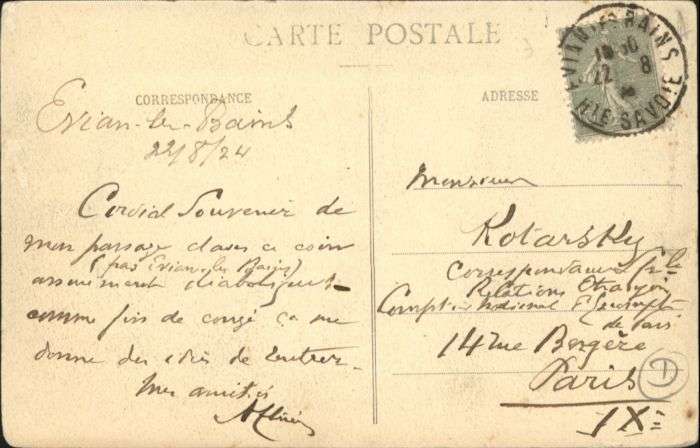 CARTE POSTALE
CORRESPONDANCE
ADRESSE
EVIAN-les-BAINS
22 8
Hte SAVOIE
Evian-les-Bains
22/8/24
Cordial Souvenir de
mon passage dans ce coin
(pas Evian les Bains)
assurément diabolique
comme fin de congé ça me
donne des idées de rentrer
Mes amitiés
Monsieur
Kotarsky
Correspondance
Relations
Comptoir National d'Escompte
de Paris
14 rue Bergère
Paris
IXe
D